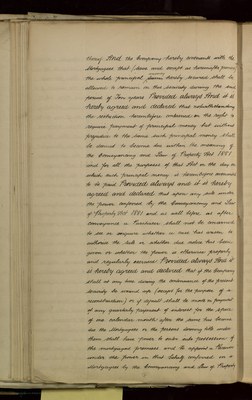 thing And the Company hereby covenants with the
Mortgagees that (save and except as hereinafter
the whole principal hereby secured shall be
allowed to remain on this security during the
period of Ten years Provided always And it is
hereby agreed and declared that notwithstanding
the provision hereinbefore contained as the right to
require payment of principal money but without
prejudice to the same such principal money shall
be deemed to become due within the meaning of
the Conveyancing and Law of Property Act 1881
and for all the purposes of that Act on the day on
which such principal money is hereinbefore covenanted
to be paid Provided always and it is hereby
agreed and declared that upon any sale under
the power conferred by the Conveyancing and Law
of Property Act 1881 and as well before as after
Conveyance a Purchaser shall not be concerned
to see or enquire whether a case has arisen to
authorise the sale or whether due notice has been
given or whether the power is otherwise properly
and regularly exercised Provided always And it
is hereby agreed and declared that if the Company
shall at any time during the continuance of the present
security be wound up (except for the purpose of a
reconstruction) or if default shall be made in payment
of any quarterly payment of interest for the space
of one calendar month after the same has become
due the Mortgagees or the persons deriving title under
them shall have power to enter into possession of
the mortgaged premises and to appoint a Receiver
under the power in that behalf conferred on a
Mortgagee by the Conveyancing and Law of Property